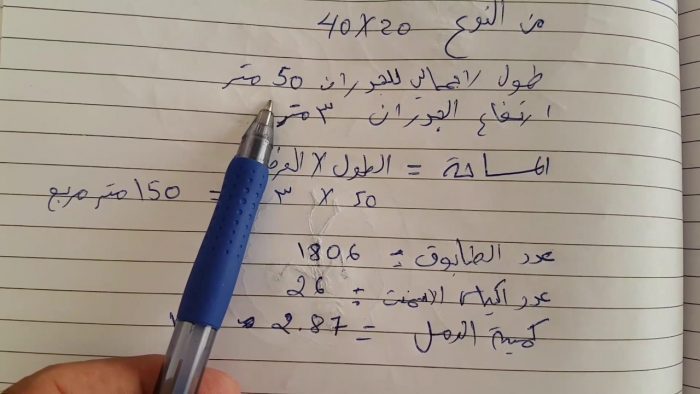 من النوع 40X20
طول اجمالي للجدران 50 متر
ارتفاع الجدران ٣ متر
المساحة = الطول X
50 X ٣ = 150 متر مربع
عدد الطابوق = 1806
عدد اكياس الاسمنت = 26
كمية الرمل = 2.87